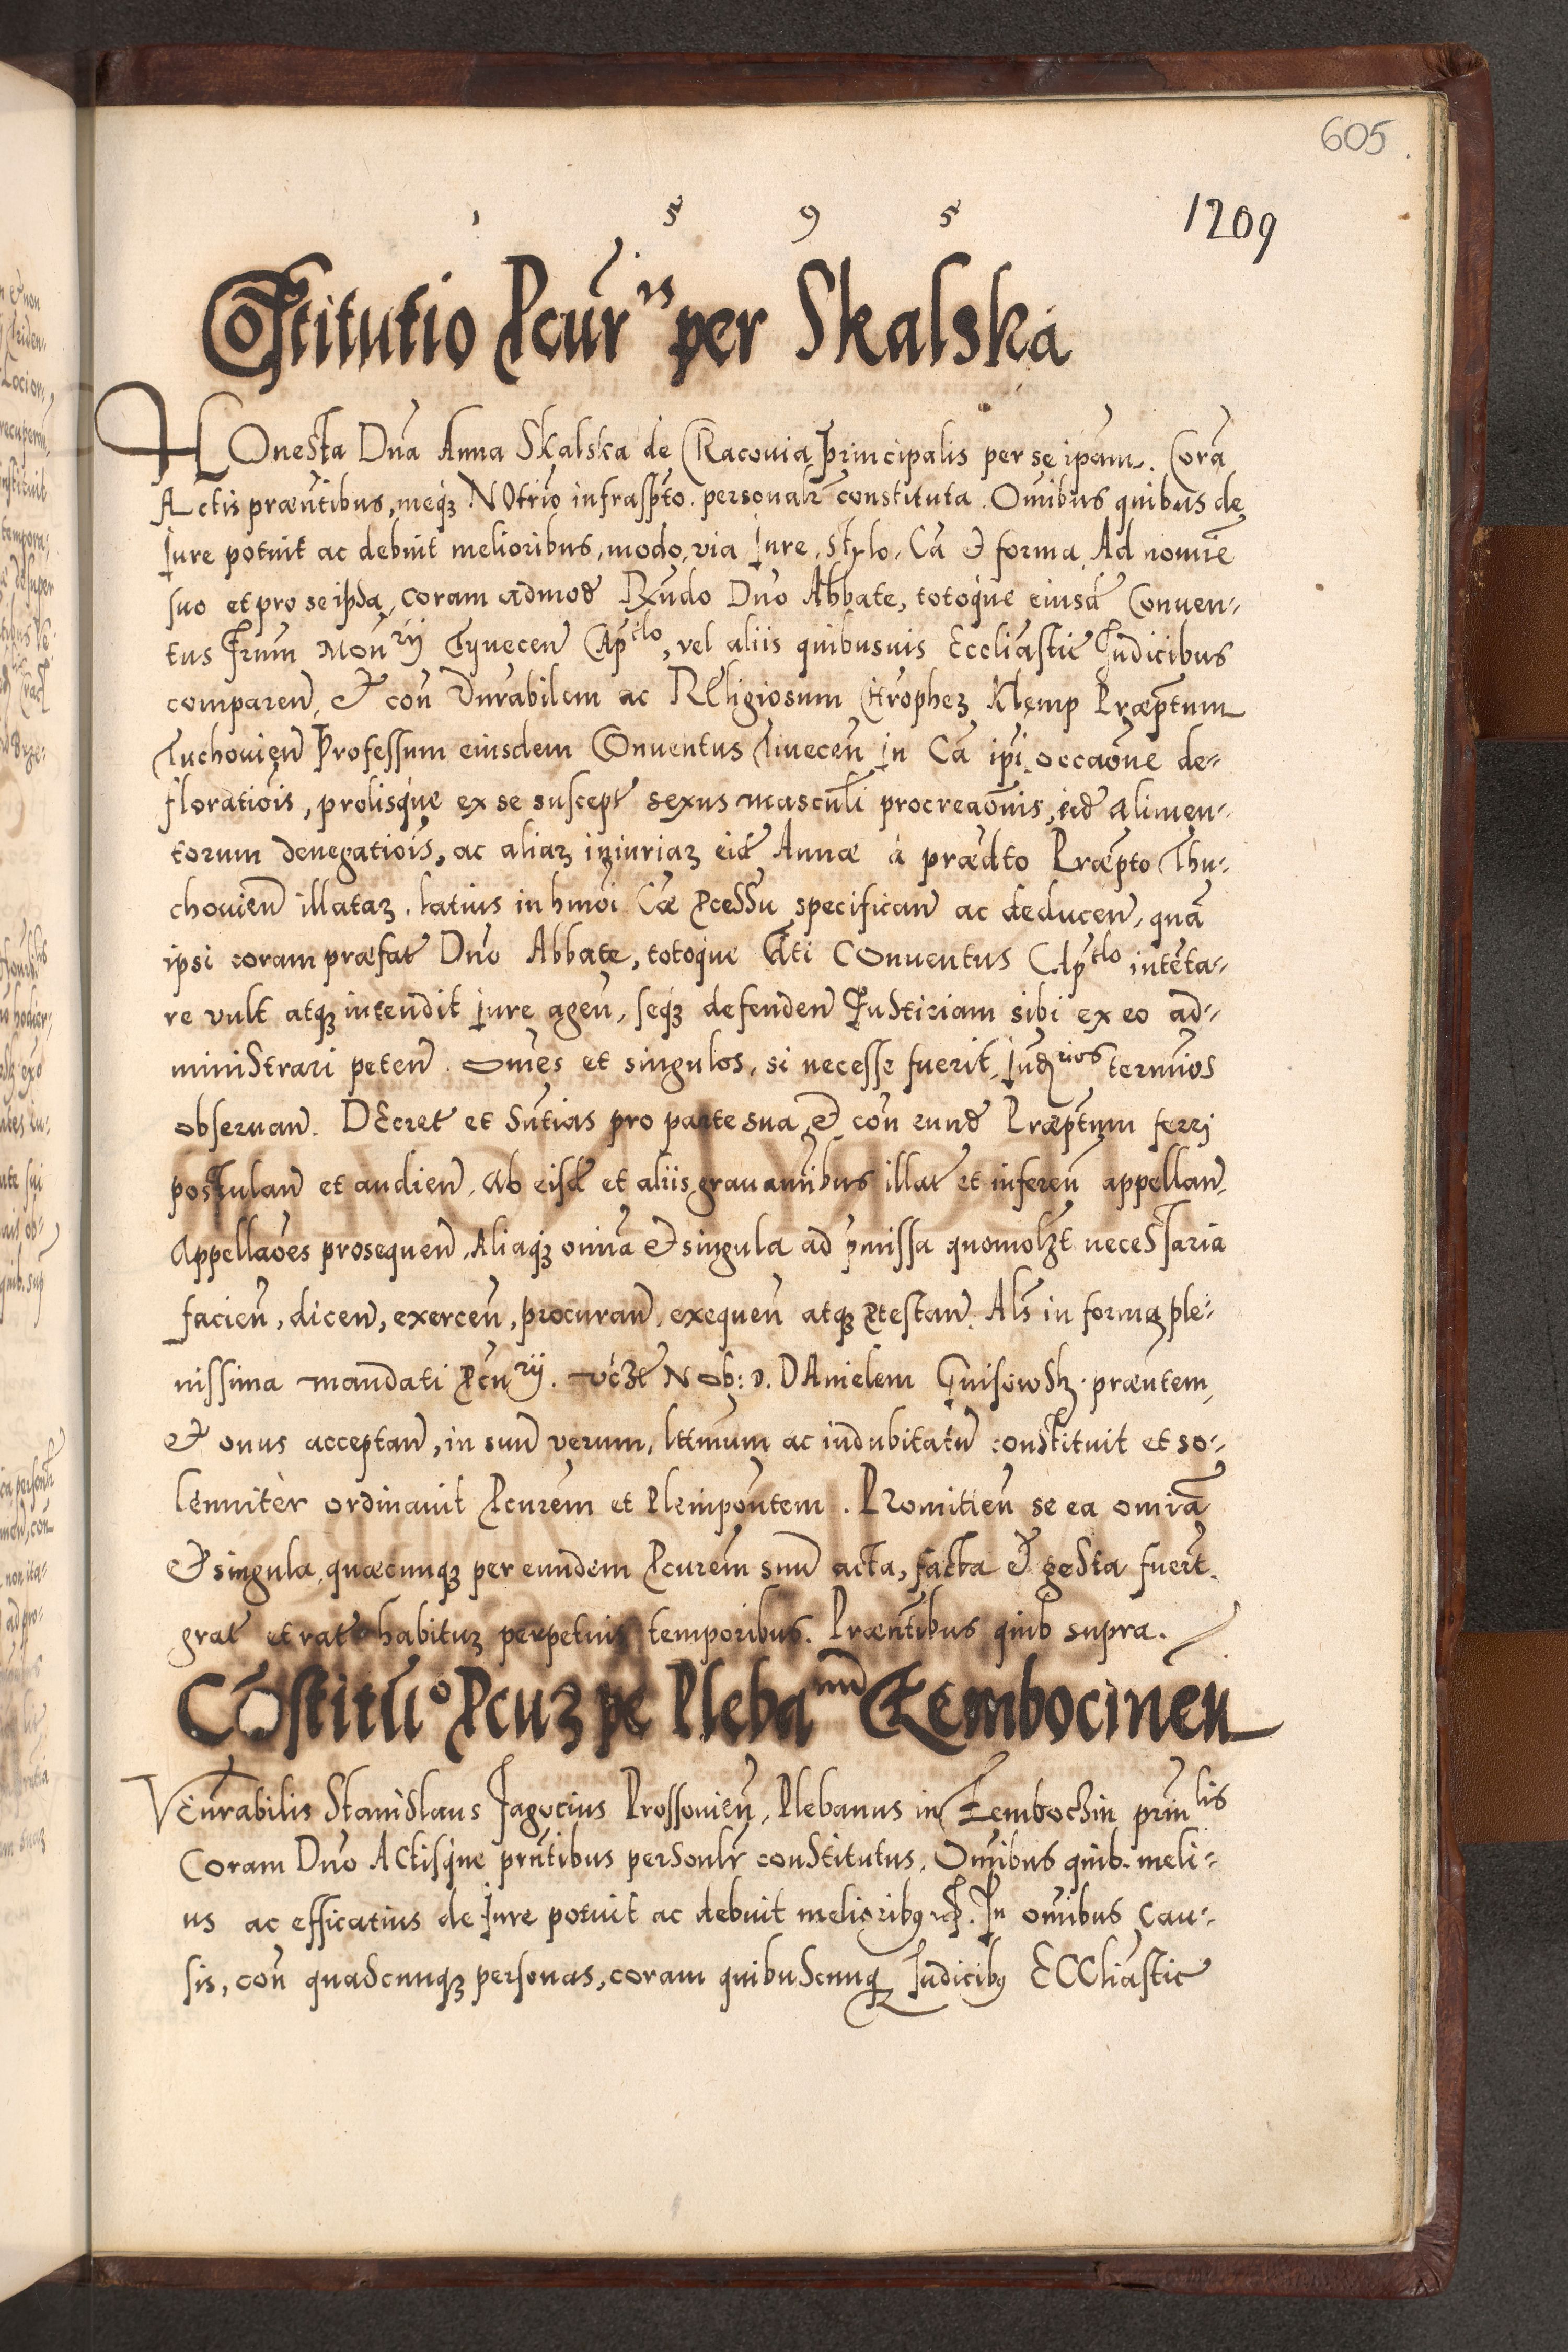 605
1 5 9 5
1209
Cōstitutio Pcur̄is per Skalska
HOnesta Dn̄a Anna Skalska de CRacouia Principalis per se ipām. Corā
Actis præn̄tibus, meqz NOtrīo infrasp̄to. personalr̄ constituta. Om̄ibus quibus de
Iure potuit ac debuit melioribus, modo, via Iure, Stylo, Cā et forma, Ad nomīe
suo et pro se ip̄da, coram admod̄ Rn̄do Dn̄o Abbate, totoque eiusd̄ Conuen-
tus Frum̄ Mon̄rij Tynecen̄ Cap̄tlo, vel aliis quibusuis Eccliāstic̄ Iudicibus
comparen̄, et con̄ Vnr̄abilem ac REligiosum Chrophez Klemp Præp̄tum
Tuchouien̄ Professum eiusdem COnuentus Tinecen̄ in Cā ipī occaōne de-
floratiōis, prolisque ex se suscept̄ sexus masculī procreaōnis, ied̄ alimen-
torum denegatiōis, ac aliaz iniuriaz eid̄ Annæ à prædto Præp̄to Thu-
chouien̄ illataz. latius in hmōi Cæ Pcessu specifican̄ ac deducen̄, quā
ipsi coram præfat̄ Dn̄o Abbate, totoque Ati COnuentus Cap̄tlo intēta-
re vult atqz intendit iure agen̄, seqz defenden̄ Iustitiam sibi ex eo ad-
ministrari peten̄. Omēs et singulos, si necesse fuerit, Iudrios termīos
obseruan̄. DEcret̄ et Sn̄tias pro parte sua et con̄ eund̄ Præp̄tum ferrj
postulan̄ et audien̄, Ab eisd̄ et aliis grauam̄ibus illat̄ et inferen̄ appellan̄.
Appellaōes prosequen̄, Aliaqz omn̄a et singula ad p̄missa quomolzt necessaria
facien̄, dicen̄, exercen̄, procuran̄, exequen̄ atqz Ptestan̄. Als̄ in forma ple-
nissima mandati Pcurij. vczt̄ NOb: D. DAnielem Gnisowsk. præn̄tem,
et onus acceptan̄, in suū verum, lt̄imum ac indubitatū constituit et so-
lenniter ordinauit Pcurem̄ et Plenipōntem. PRomitien̄ se ea omīa
et singula, quæcunqz per eundem Pcurem̄ suū acta, facta et gesta fuerīt.
grat̄ et rat̄ habituz perpetuis temporibus. Præn̄tibus quib supra.
Cōstitūo Pcuz pe Plebanū Tembocinen̄
VEnr̄abilis Stanislaus Jagocius Prossouien̄, Plebanus in Tembochin prin̄lis
Coram Dn̄o ACtisque prn̄tibus personlr̄ constitutus. Om̄ibus quib. meli-
us ac efficatius de Iure potuit ac debuit melioribq etc. In om̄ibus Cau-
sis, con̄ quascunqz personas, coram quibuscunq Iudicibq ECCliāstic̄